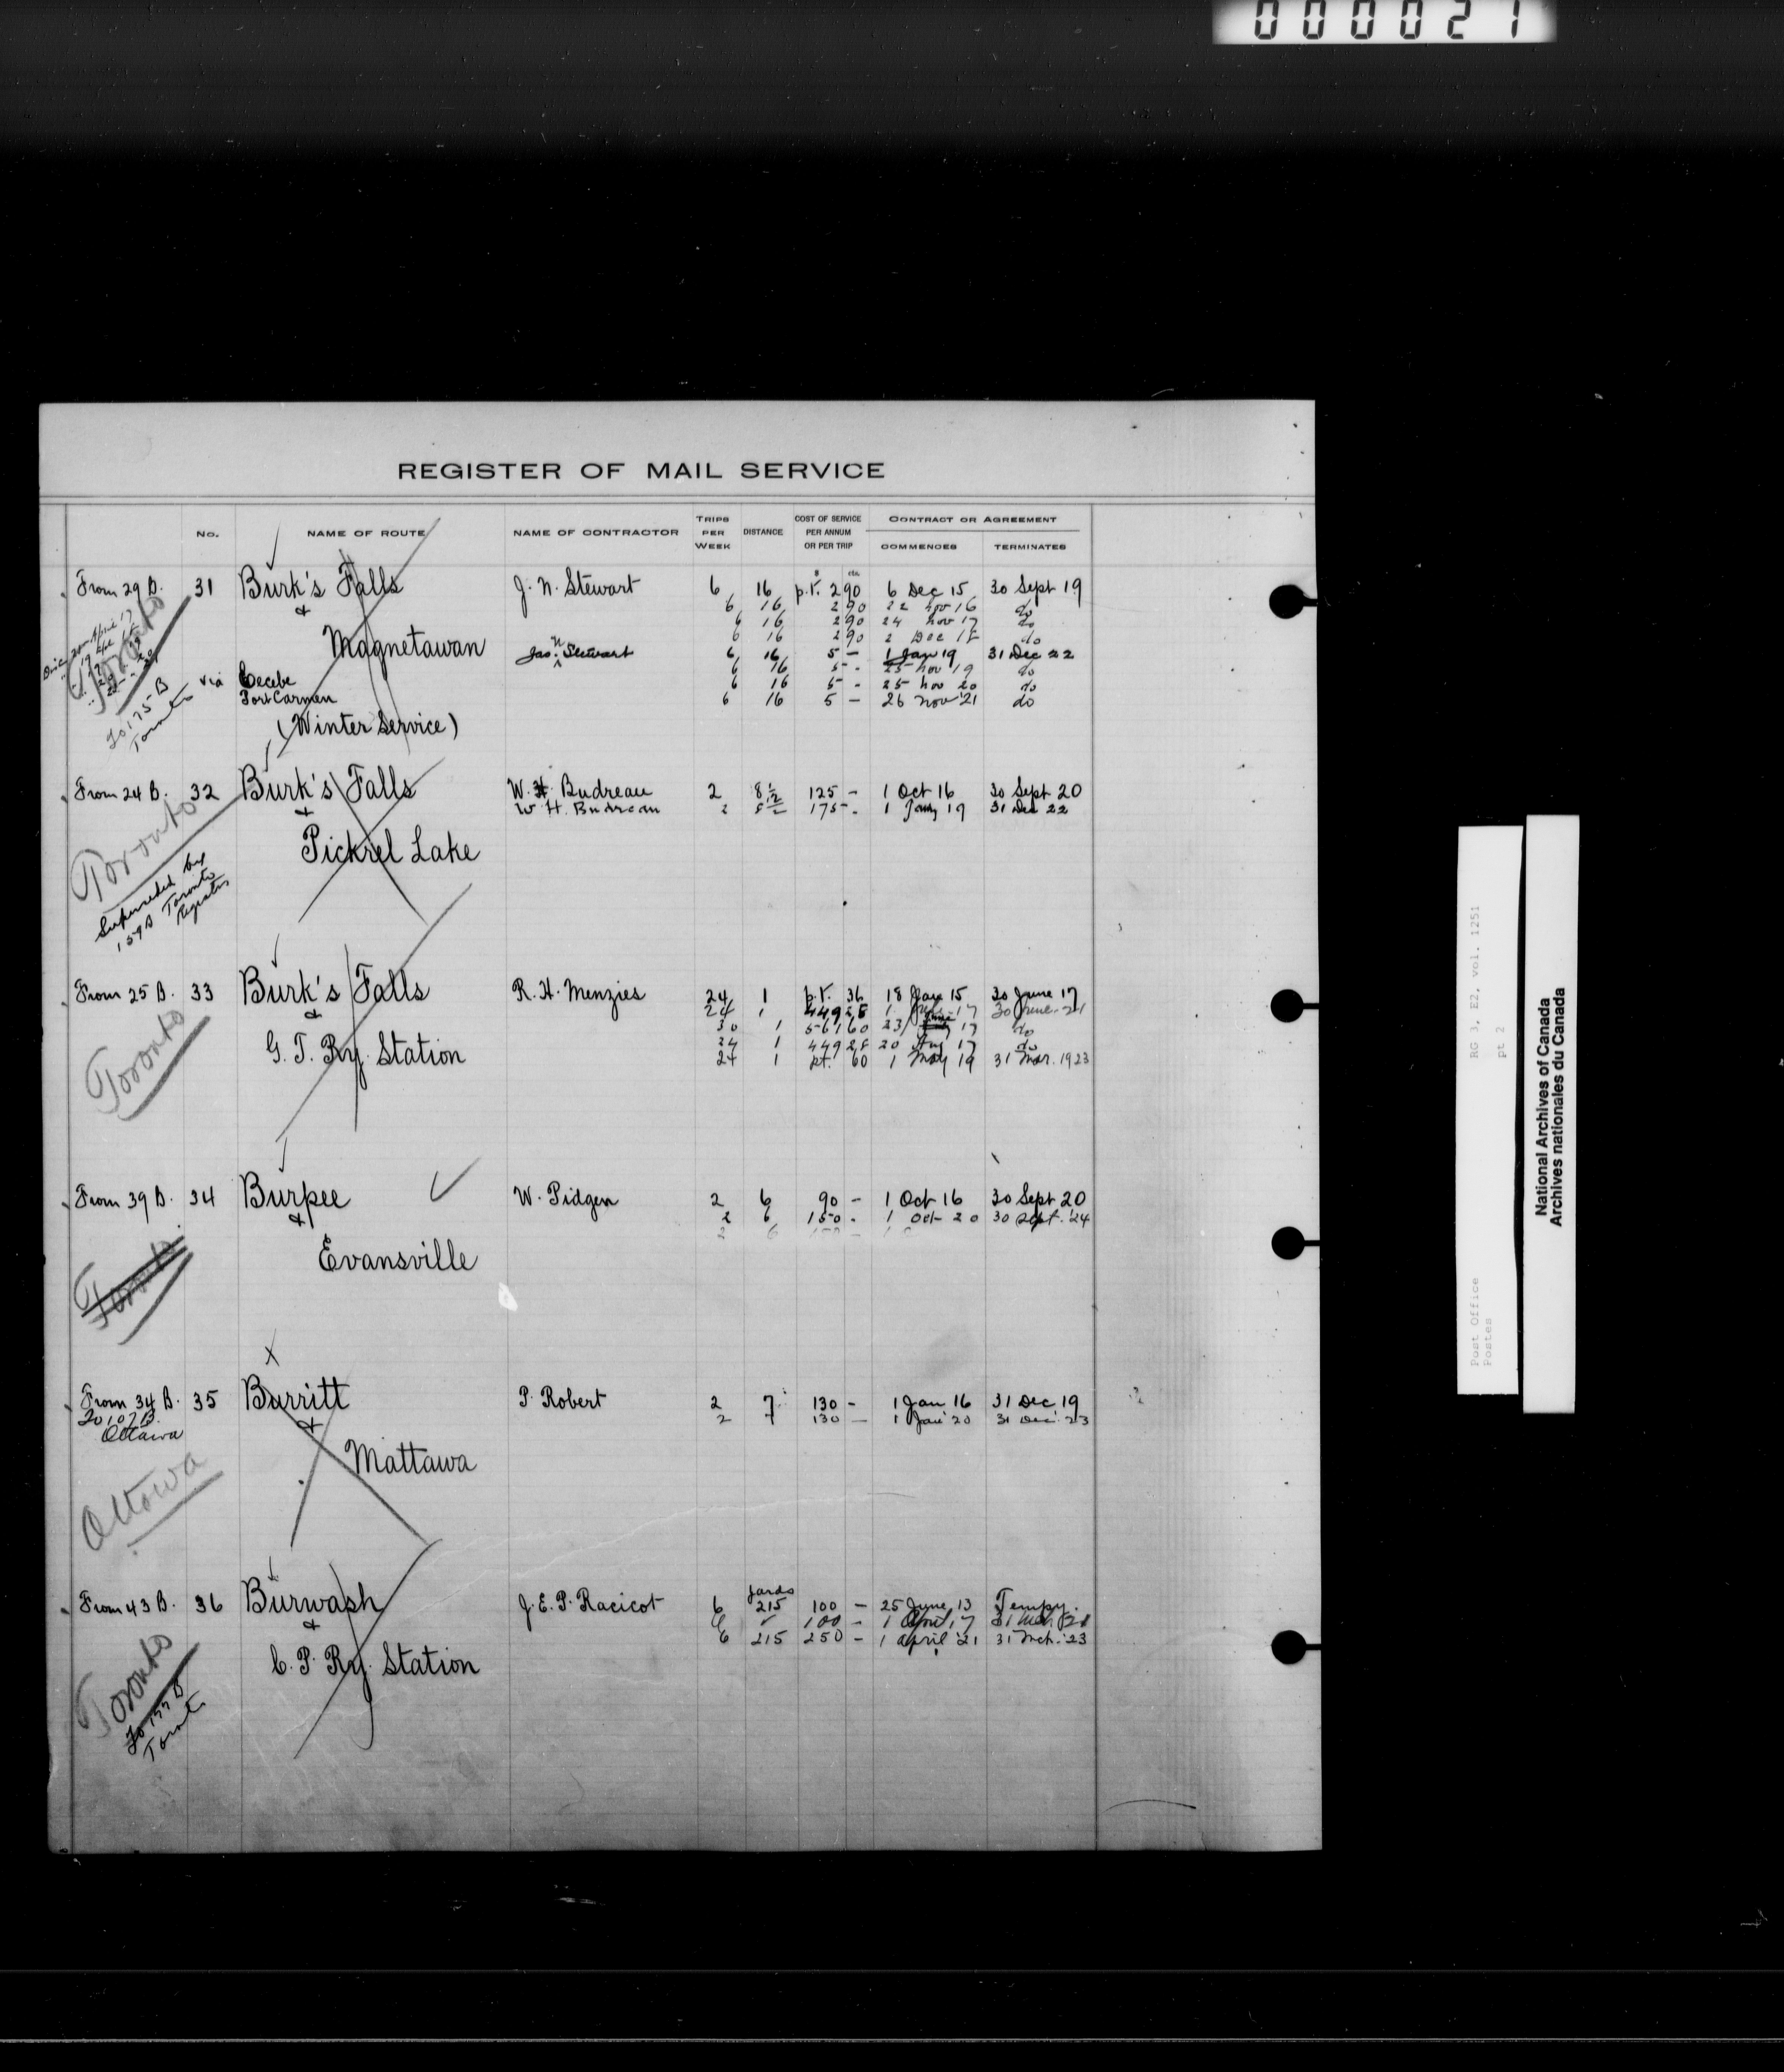 000027
REGISTER OF MAIL SERVICE
No. NAME OF ROUTE NAME OF CONTRACTOR TRIPS PER WEEK DISTANCE COST OF SERVICE PER ANNUM OR PER TRIP CONTRACT OR AGREEMENT
COMMENCES TERMINATES
From 29 B. 31 Burk's Falls J. N. Stewart 6 16 p.t. 2 90 6 Dec 15 30 Sept 19
& 6 16 2 90 22 Nov 16 do
6 16 2 90 24 Nov 17 do
6 16 2 90 2 Dec 18 do
Magnetawan Jas. N. Stewart 6 16 5 - 1 Jan 19 31 Dec 22
6 16 5 - 25 Nov 19 do
via Cecebe 6 16 5 - 25 Nov 20 do
Port Carmen 6 16 5 - 26 Nov '21 do
(Winter Service)
Toronto
To 175 B
Toronto
From 24 B. 32 Burk's Falls W. H. Budreau 2 8½ 125 - 1 Oct 16 30 Sept 20
& W. H. Budreau 2 8½ 175 - 1 Jany 19 31 Dec 22
Pickrel Lake
Toronto
Superseded by
159 B Toronto
Register
From 25 B. 33 Burk's Falls R. H. Menzies 24 1 p.t. 36 18 Jan 15 30 June 17
& 24 1 449 28 1 July 17 30 June 21
30 1 561 60 23 June 17 do
24 1 449 28 20 Aug 17 do
G. T. Ry. Station 24 1 pt. 60 1 May 19 31 Mar. 1923
Toronto
From 39 B. 34 Burpee W. Pidgen 2 6 90 - 1 Oct 16 30 Sept 20
& 2 6 150 - 1 Oct 20 30 Sept. '24
Evansville
Toronto
From 34 B. 35 Burritt P. Robert 2 7 130 - 1 Jan 16 31 Dec 19
To 107 B. & 2 7 130 - 1 Jan '20 31 Dec. '23
Ottawa
Mattawa
Ottowa
From 43 B. 36 Burwash J. E. P. Racicot 6 yards 215 100 - 25 June 13 Tempy.
& 6 100 - 1 April 17 31 Mch. '21
6 215 250 - 1 April '21 31 Mch. '23
C. P. Ry. Station
Toronto
To 177 B
Toronto
Post Office RG 3, E2, vol. 1251
Postes pt 2
National Archives of Canada
Archives nationales du Canada